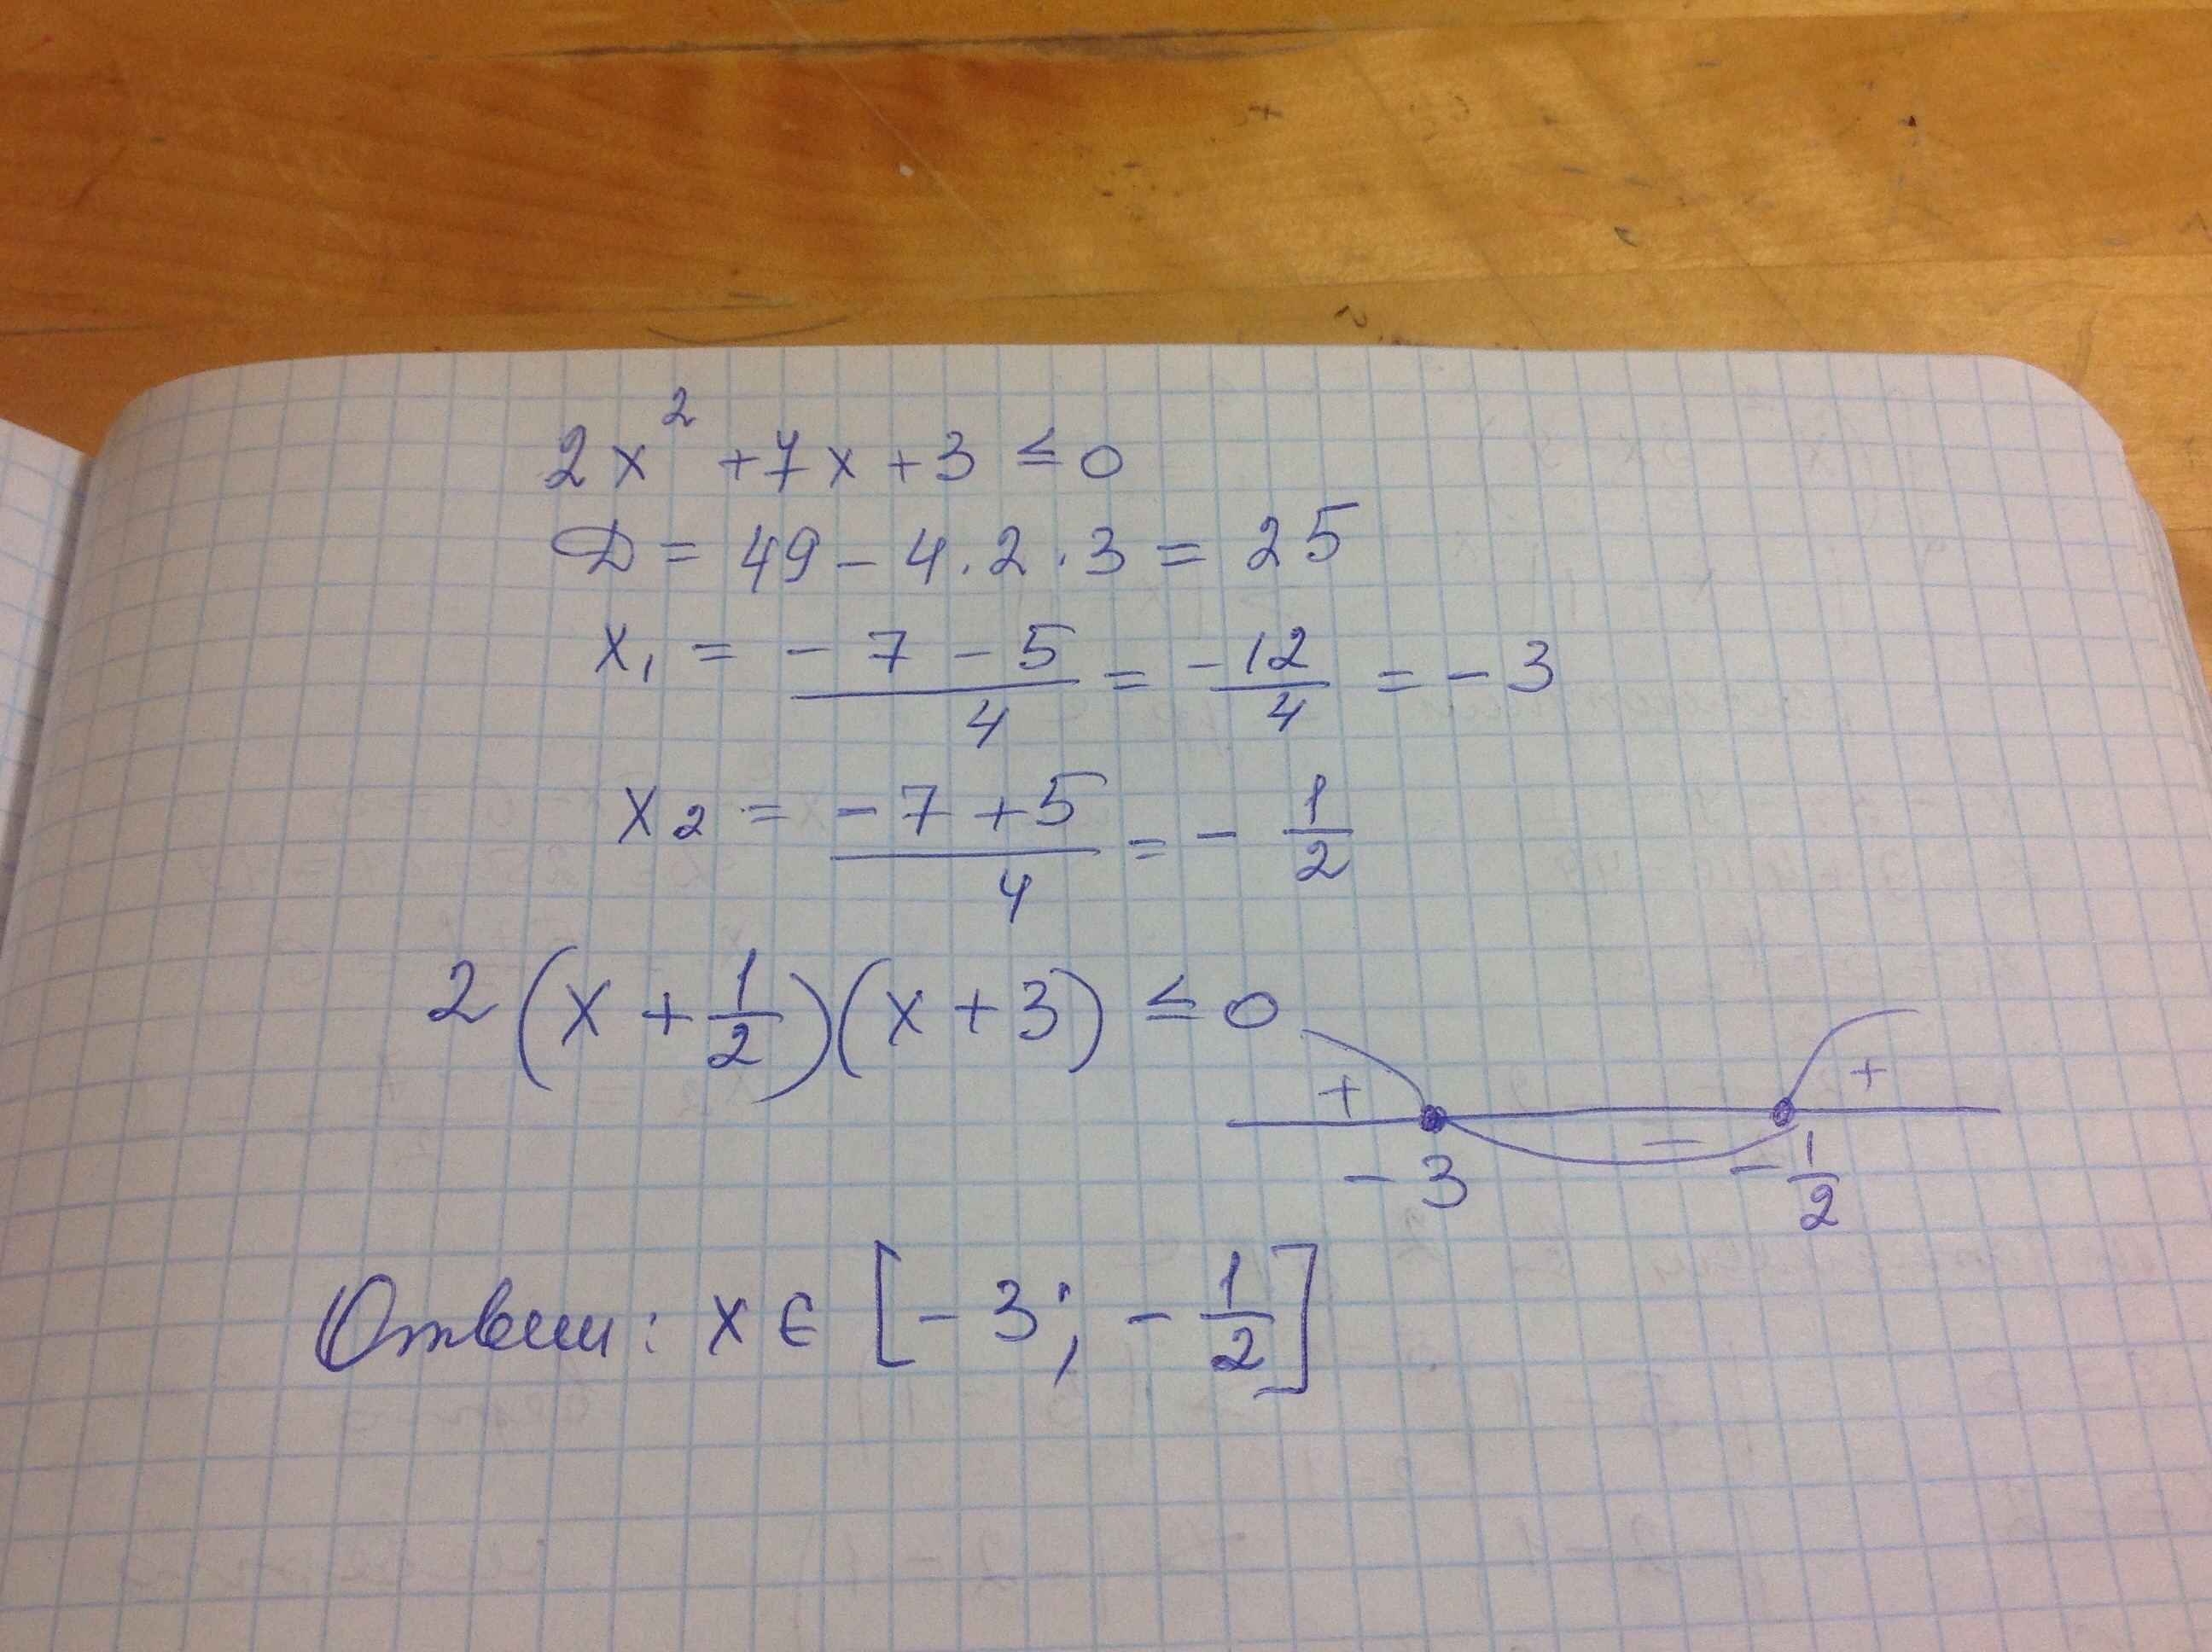 2x² + 7x + 3 ≤ 0
D = 49 - 4 · 2 · 3 = 25
x₁ = (-7 - 5)/4 = -12/4 = -3
x₂ = (-7 + 5)/4 = -1/2
2(x + 1/2)(x + 3) ≤ 0
+ - +
-3 -1/2
Ответ: x ∈ [-3; -1/2]